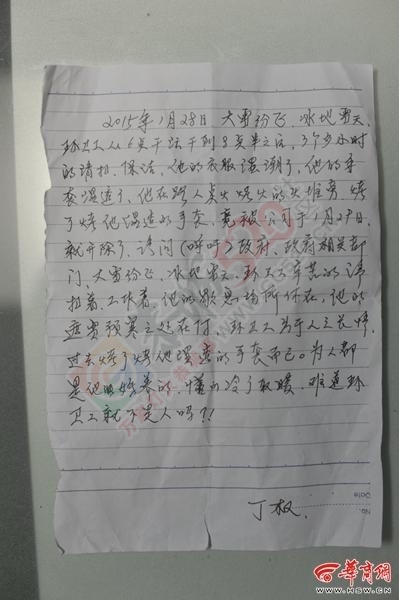 2015年1月28日 大雪纷飞、冰地雪天、
环卫工从6点干活干到8点半之后、3个多小时
的清扫、保洁、他的衣服湿潮了、他的手
套湿透了、他在路人点火烧火的火堆旁、烤
了烤他湿透的手套、竟被公司于1月29日、
就开除了、请问(呼吁)政府、政府相关部
门、大雪纷飞、冰地雪天、环卫工辛苦的清
扫着、工作着、他的歇息场所何在、他的
避寒预寒之处在何、环卫工为于人之长情
过去烤了烤他湿透的手套而已。为人都
是他妈妈养的、懂的冷了取暖、难道环
卫工就不是人吗?!
丁权.
Date
No.
华商网
WWW.HSW.CN